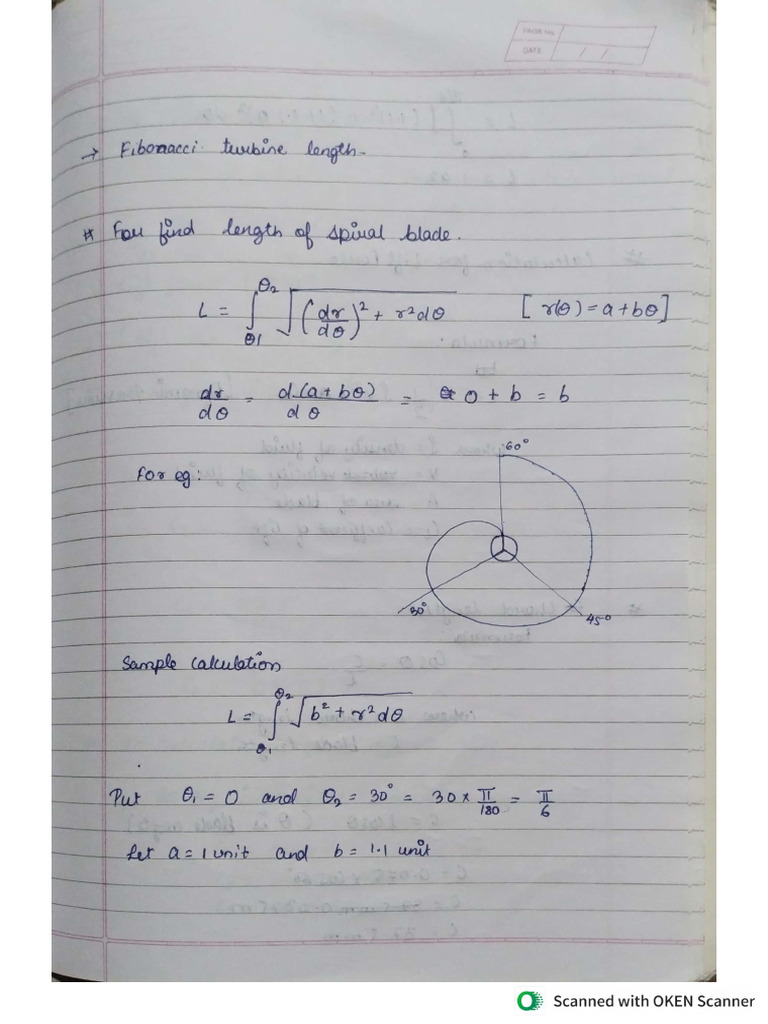 PAGE No.
DATE / /
→ Fibonacci turbine length.
* For find length of spiral blade.
L = ∫θ1^θ2 √((dr/dθ)² + r² dθ) [r(θ) = a + bθ]
dr/dθ = d(a + bθ)/dθ = 0 + b = b
For eg:
60°
30°
45°
Sample Calculation
L = ∫θ1^θ2 √(b² + r² dθ)
Put θ1 = 0 and θ2 = 30° = 30 × π/180 = π/6
Let a = 1 unit and b = 1.1 unit
Scanned with OKEN Scanner